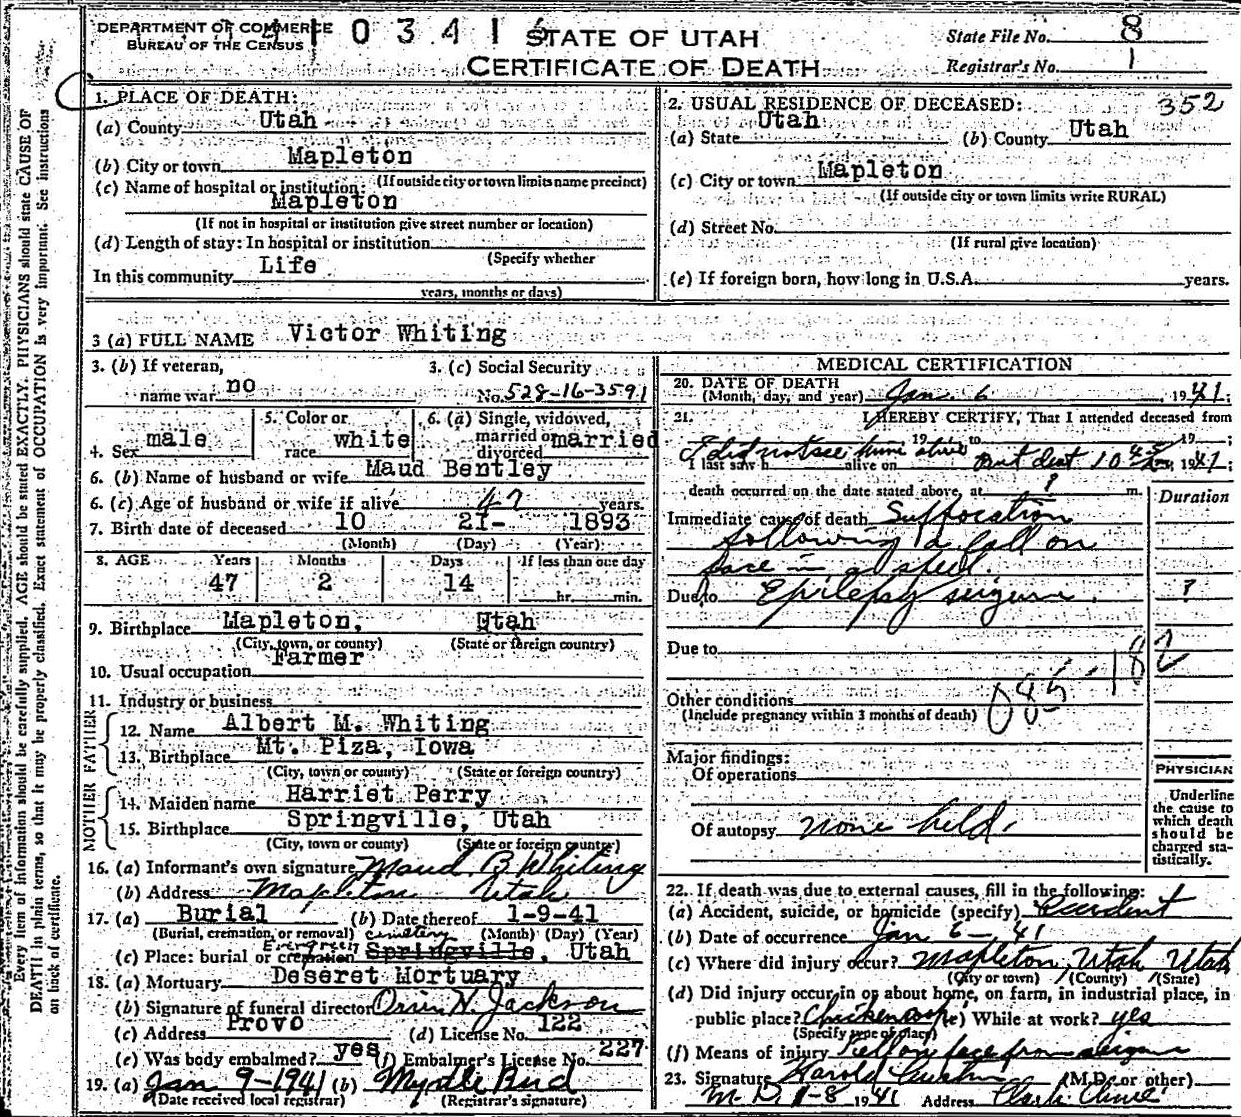 DEPARTMENT OF COMMERCE
BUREAU OF THE CENSUS
0 3 4 1
STATE OF UTAH
CERTIFICATE OF DEATH
State File No. 8
Registrar's No. 1
352
Every item of information should be carefully supplied. AGE should be stated EXACTLY. PHYSICIANS should state CAUSE OF
DEATH in plain terms, so that it may be properly classified. Exact statement of OCCUPATION is very important. See instructions
on back of certificate.
1. PLACE OF DEATH:
(a) County Utah
(b) City or town Mapleton
(If outside city or town limits name precinct)
(c) Name of hospital or institution:
Mapleton
(If not in hospital or institution give street number or location)
(d) Length of stay: In hospital or institution
(Specify whether
In this community Life
years, months or days)
2. USUAL RESIDENCE OF DECEASED:
(a) State Utah (b) County Utah
(c) City or town Mapleton
(If outside city or town limits write RURAL)
(d) Street No.
(If rural give location)
(e) If foreign born, how long in U.S.A. years.
3 (a) FULL NAME Victor Whiting
3. (b) If veteran,
name war no
3. (c) Social Security
No. 528-16-3591
4. Sex male
5. Color or
race white
6. (a) Single, widowed,
married or
divorced married
6. (b) Name of husband or wife Maud Bentley
6. (c) Age of husband or wife if alive 47 years.
7. Birth date of deceased 10 21- 1893
(Month) (Day) (Year)
8. AGE Years Months Days If less than one day
47 2 14 hr. min.
9. Birthplace Mapleton, Utah
(City, town, or county) (State or foreign country)
10. Usual occupation Farmer
11. Industry or business
FATHER
12. Name Albert M. Whiting
13. Birthplace Mt. Piza, Iowa
(City, town or county) (State or foreign country)
MOTHER
14. Maiden name Harriet Perry
15. Birthplace Springville, Utah
(City, town or county) (State or foreign country)
16. (a) Informant's own signature Maud B Whiting
(b) Address Mapleton Utah
17. (a) Burial (b) Date thereof 1-9-41
(Burial, cremation, or removal) (Month) (Day) (Year)
Evergreen cemetery
(c) Place: burial or cremation Springville, Utah
18. (a) Mortuary Deseret Mortuary
(b) Signature of funeral director Orrin N. Jackson
(c) Address Provo (d) License No. 122
(e) Was body embalmed? yes (f) Embalmer's License No. 227
19. (a) Jan 9-1941 (b) Myrtle Bird
(Date received local registrar) (Registrar's signature)
MEDICAL CERTIFICATION
20. DATE OF DEATH
(Month, day, and year) Jan 6, 1941;
21. I HEREBY CERTIFY, That I attended deceased from
19 to 19 ;
I did not see him alive
I last saw h alive on but dead 10 45 , 1941;
death occurred on the date stated above, at ? m.
Duration
Immediate cause of death Suffocation
following a fall on
face in a spell.
Due to Epilepsy seizure. ?
Due to
085 182
Other conditions
(Include pregnancy within 3 months of death)
Major findings:
Of operations
Of autopsy none held.
PHYSICIAN
Underline
the cause to
which death
should be
charged sta-
tistically.
22. If death was due to external causes, fill in the following:
(a) Accident, suicide, or homicide (specify) Accident
(b) Date of occurrence Jan 6-41
(c) Where did injury occur? Mapleton, Utah Utah
(City or town) (County) (State)
(d) Did injury occur in or about home, on farm, in industrial place, in
public place? Chicken coop (e) While at work? yes
(Specify type of place)
(f) Means of injury Fell on face from seizure
23. Signature Harold Austin (M.D. or other)
M.D. 1-8 1941 Address Clark Clinic